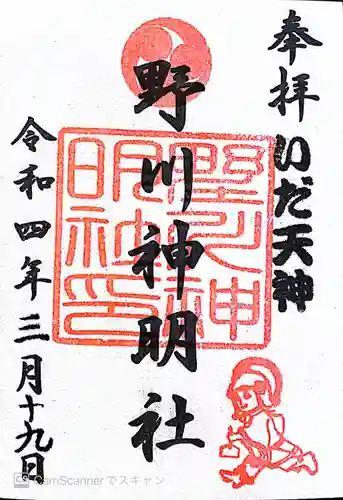 奉拝
いだ天神
野川神明社
野川神明社印
令和四年三月十九日
CamScannerでスキャン